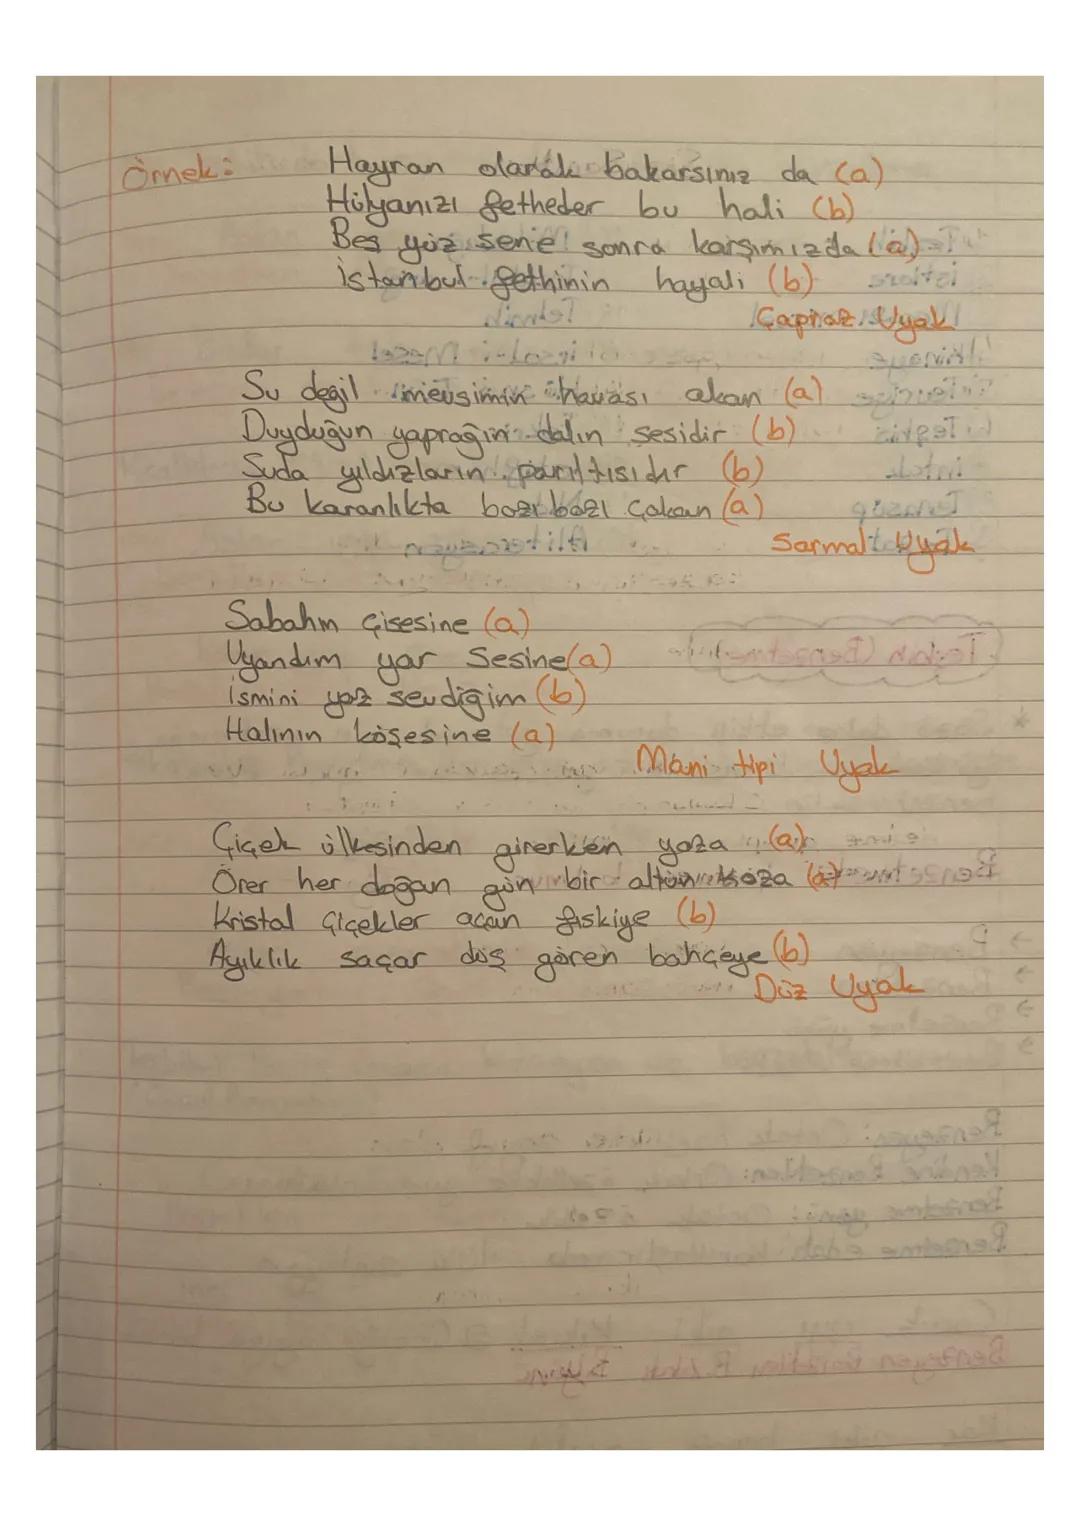 Örnek: Hayran olarak bakarsınız da (a)
Hülyanızı fetheder bu hali (b)
Beş yüz sene sonra karşımızda (a)
İstanbul fethinin hayali (b)
Çapraz Uyak
Su değil mevsimin havası akan (a)
Duyduğun yaprağın dalın sesidir (b)
Suda yıldızların parıltısıdır (b)
Bu karanlıkta bazı bazı çakan (a)
Sarmal Uyak
Sabahın çisesine (a)
Uyandım yar Sesine (a)
İsmini yaz sevdiğim (b)
Halının köşesine (a)
Mani tipi Uyak
Çiçek ülkesinden girerken yaza (a)
Örer her doğan gün bir altın koza (a)
Kristal çiçekler açan fıskiye (b)
Ayıklık saçar düş gören bahçeye (b)
Düz Uyak